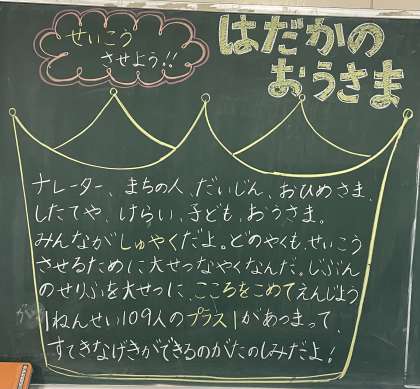 せいこう
させよう!!
はだかの
おうさま
ナレーター、まちの人、だいじん、おひめさま、
したてや、けらい、子ども、おうさま。
みんながしゅやくだよ。どのやくも、せいこう
させるために大せつなやくなんだ。じぶん
のせりふを大せつに、こころをこめてえんじよう
1ねんせい109人のプラス1があつまって、
すてきなげきができるのがたのしみだよ!